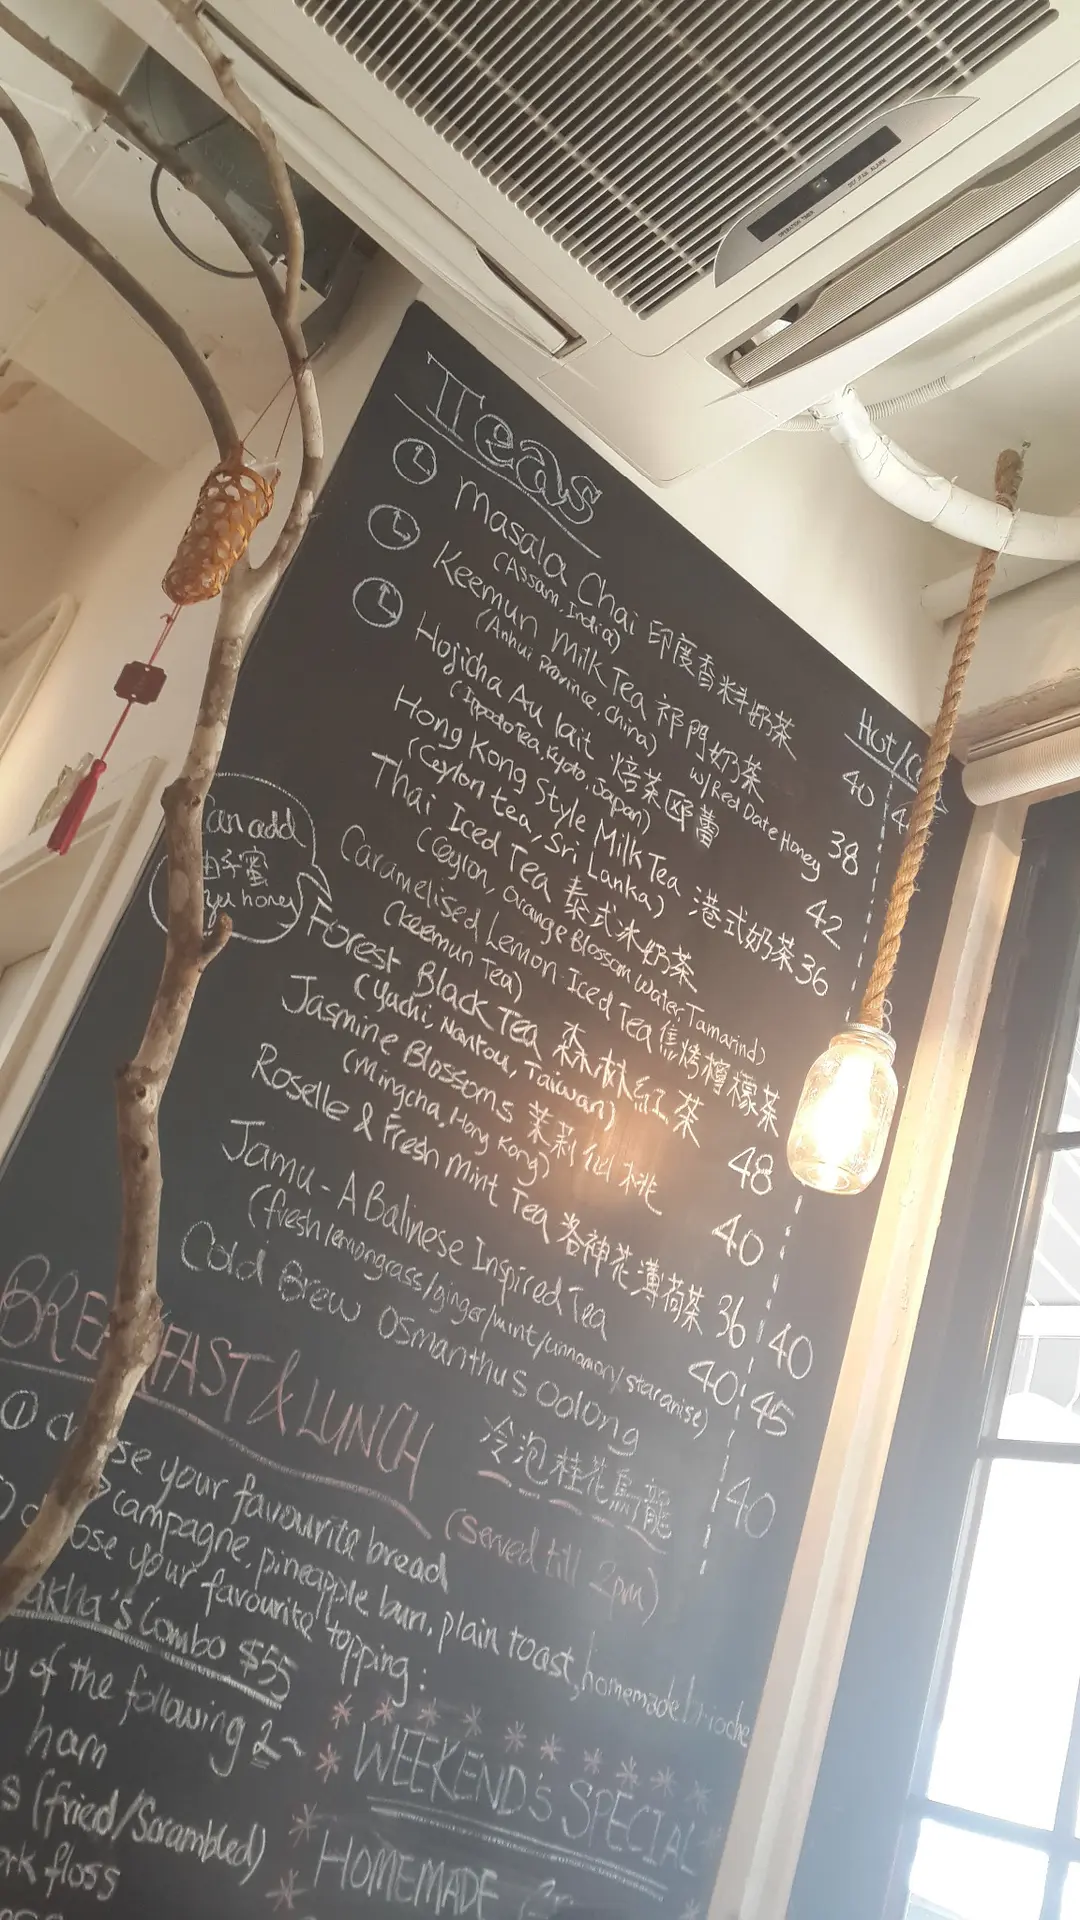 OPERATION TIMER
Teas
Hot/
Masala Chai 印度香料奶茶 40
(Assam, India)
Keemun Milk Tea 祁門奶茶 38
(Anhui Province, China) w/Red Date Honey
Hojicha Au lait 焙茶歐蕾 42
(IppodoTea, Kyoto, Japan)
Hong Kong Style Milk Tea 港式奶茶 36
(Ceylon tea, Sri Lanka)
Thai Iced Tea 泰式冰奶茶
(Ceylon, Orange Blossom Water, Tamarind)
Caramelised Lemon Iced Tea 焦烤檸檬茶
(Keemun Tea)
Can add
子蜜
honey
Forest Black Tea 森林紅茶 48
(Yuchi, Nantou, Taiwan)
Jasmine Blossoms 茉莉仙桃 40
(Mingcha, Hong Kong)
Roselle & Fresh Mint Tea 洛神花薄荷茶 36 40
Jamu - A Balinese Inspired Tea 40 45
(fresh lemongrass/ginger/mint/cinnamon/staranise)
Cold Brew Osmanthus Oolong 40
冷泡桂花烏龍
BREAKFAST & LUNCH (Served till 2pm)
① choose your favourite bread
campagne, pineapple bun, plain toast, homemade brioche
choose your favourite topping:
akha's Combo $55
of the following 2~
ham
(fried/Scrambled)
floss
WEEKEND's SPECIAL
HOMEMADE